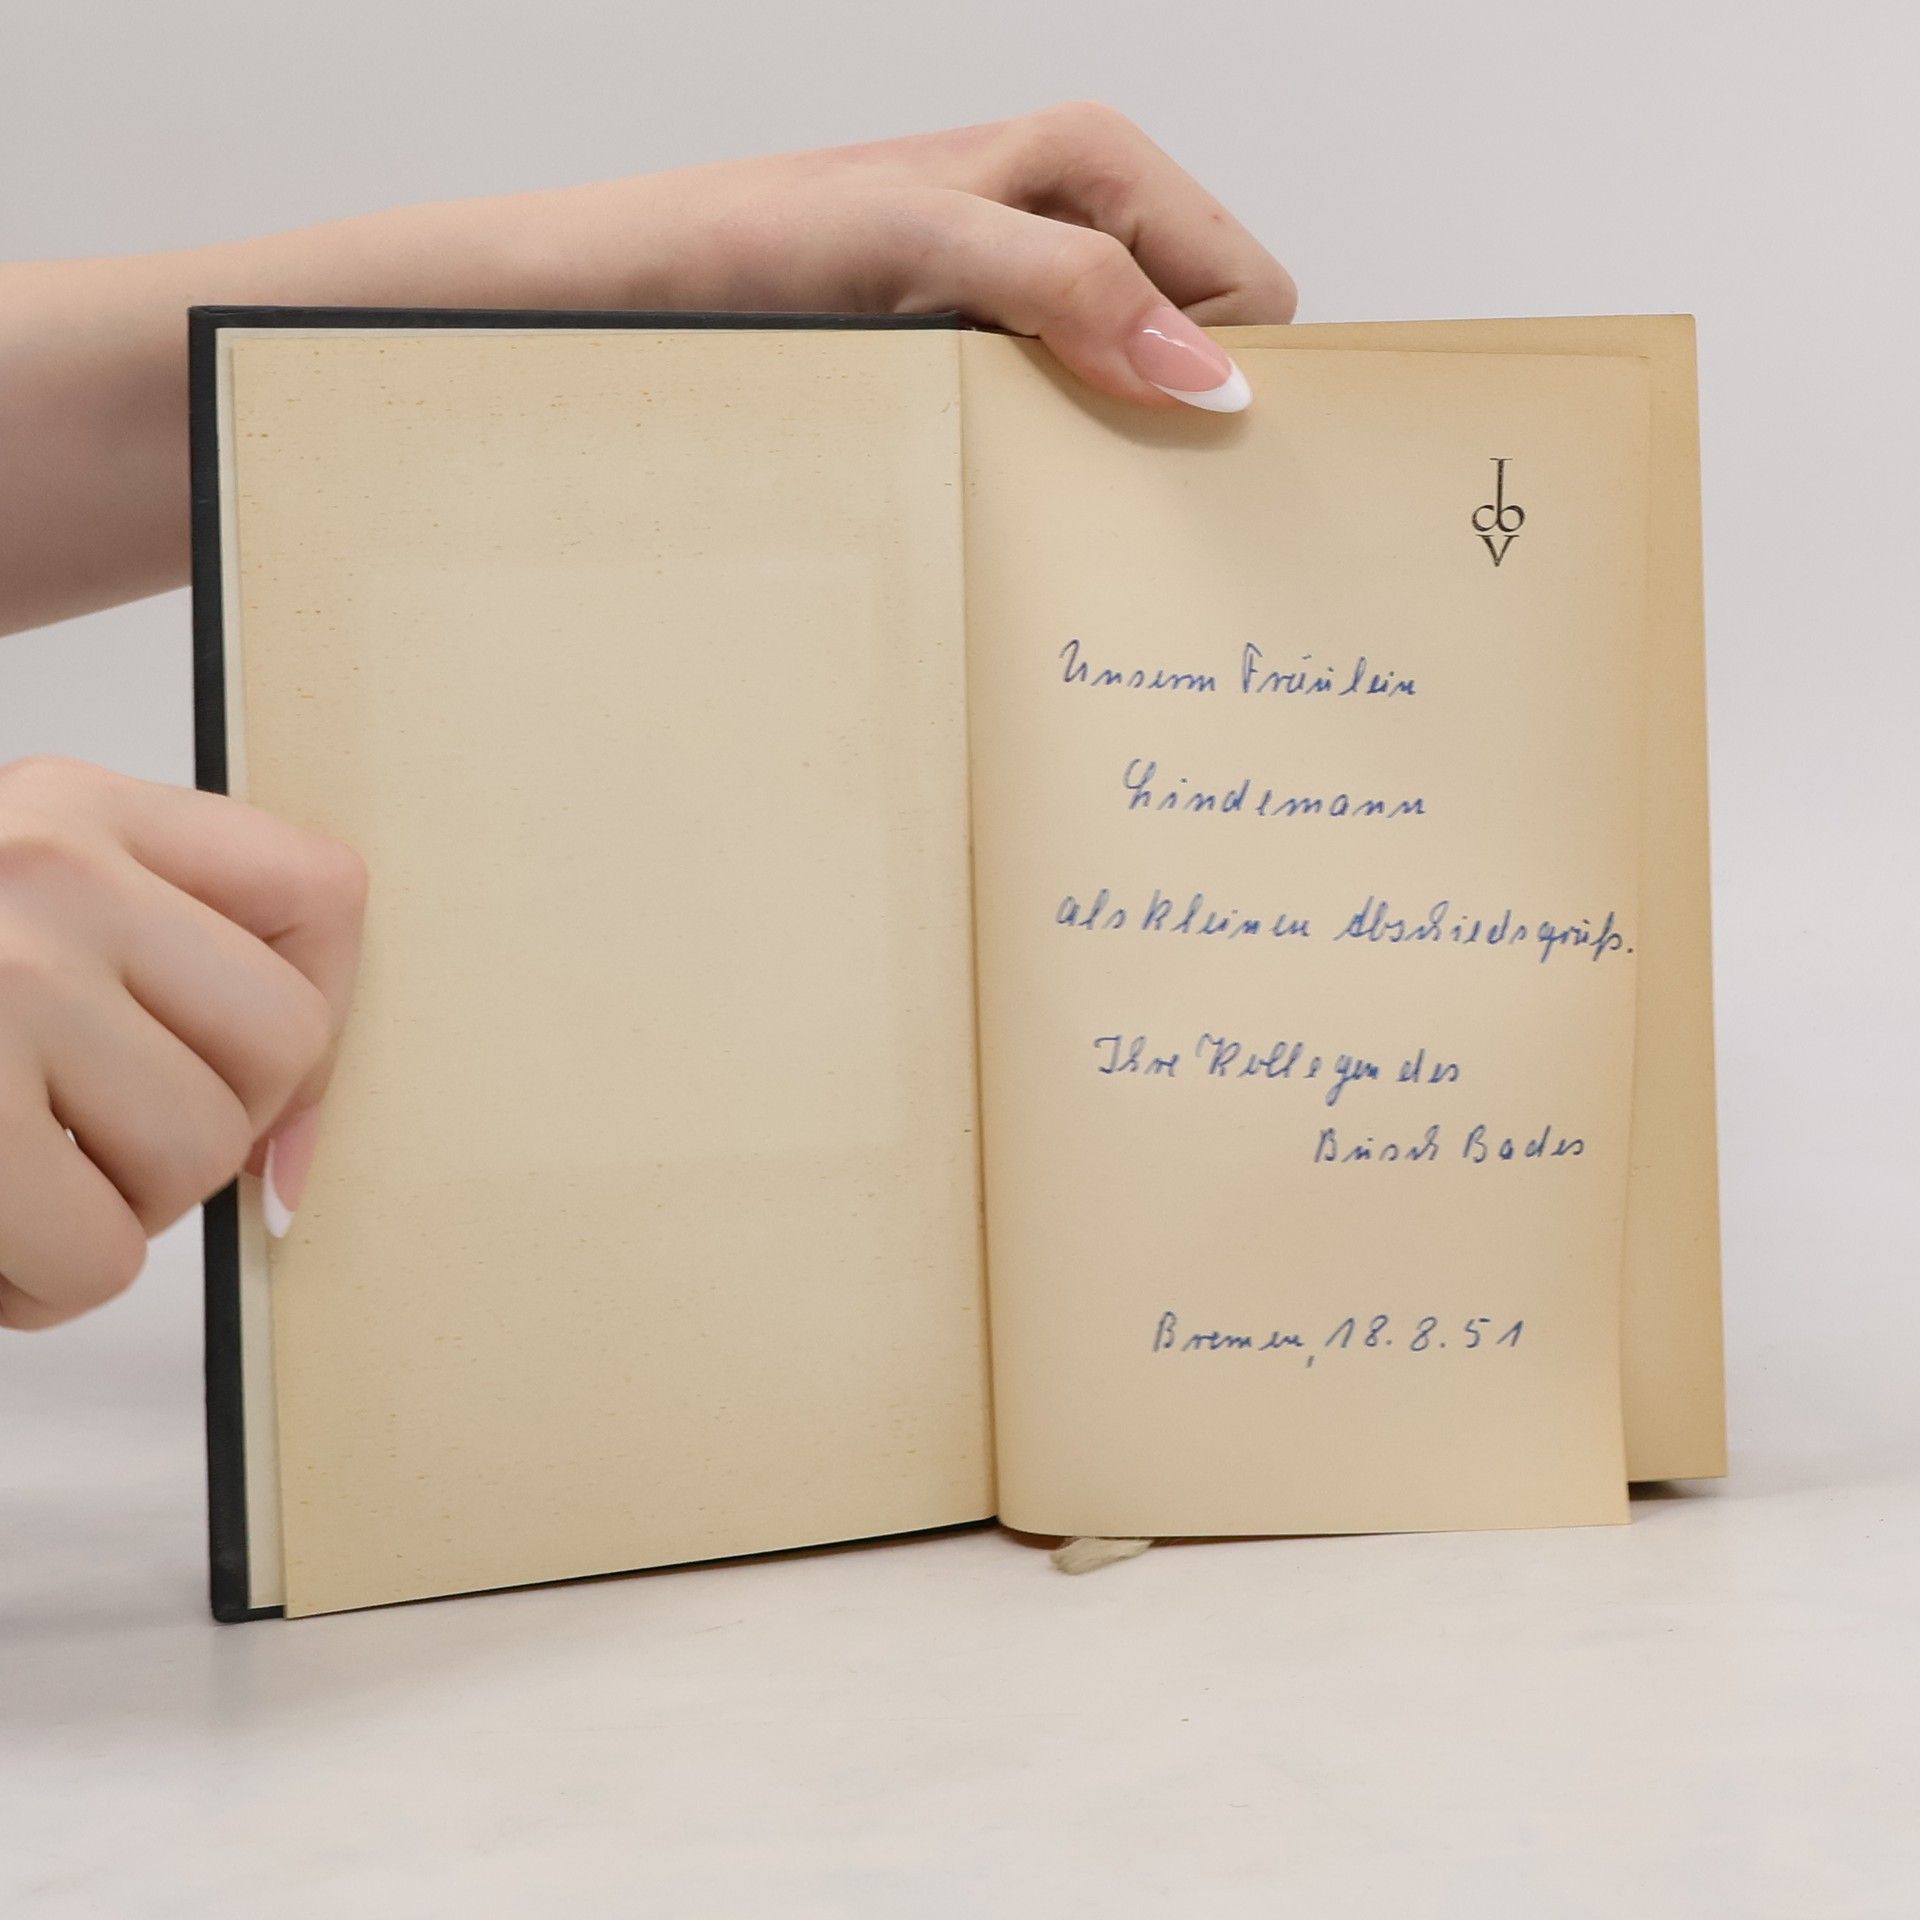 I
cb
V
Unserm Fräulein
Lindemann
als kleinen Abschiedsgruß.
Ihre Kollegen des
Busch Bades
Bremen, 18. 8. 51